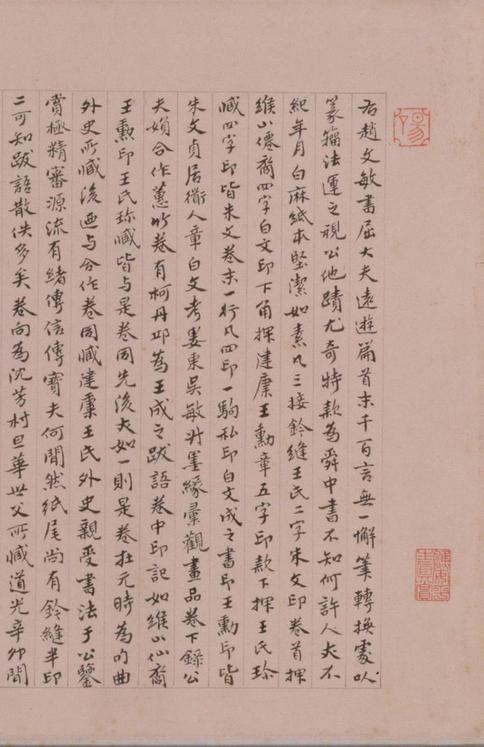 右趙文敏書屈大夫遠遊篇首末千百言無一懈筆轉換處以
篆籀法運之視公他蹟尤奇特款為舜中書不知何許人夫不
紀年月白麻紙本堅潔如素凡三接鈐縫王氏二字朱文印卷首押
維山僊裔四字白文印下角押建康王勳章五字印款下押王氏珍
臧四字印皆朱文卷末一行凡四印一駒私印白文成之書印王勳印皆
朱文貞居衜人章白文考婁東吳敏尗墨緣彙觀畫品卷下錄公
夫婦合作蕙竹卷有柯丹邱為王成之跋語卷中印記如維山仙裔
王勳印王氏珍臧皆與是卷同先後大如一則是卷在元時為句曲
外史所臧後画与合作卷同臧建康王氏外史親受書法于公鑒
賞極精審源流有緒傳信傳寶夫何閒然紙尾尚有鈐縫半印
二可知跋語散佚多矣卷向為沈芳村旦華世父所臧道光辛卯閒